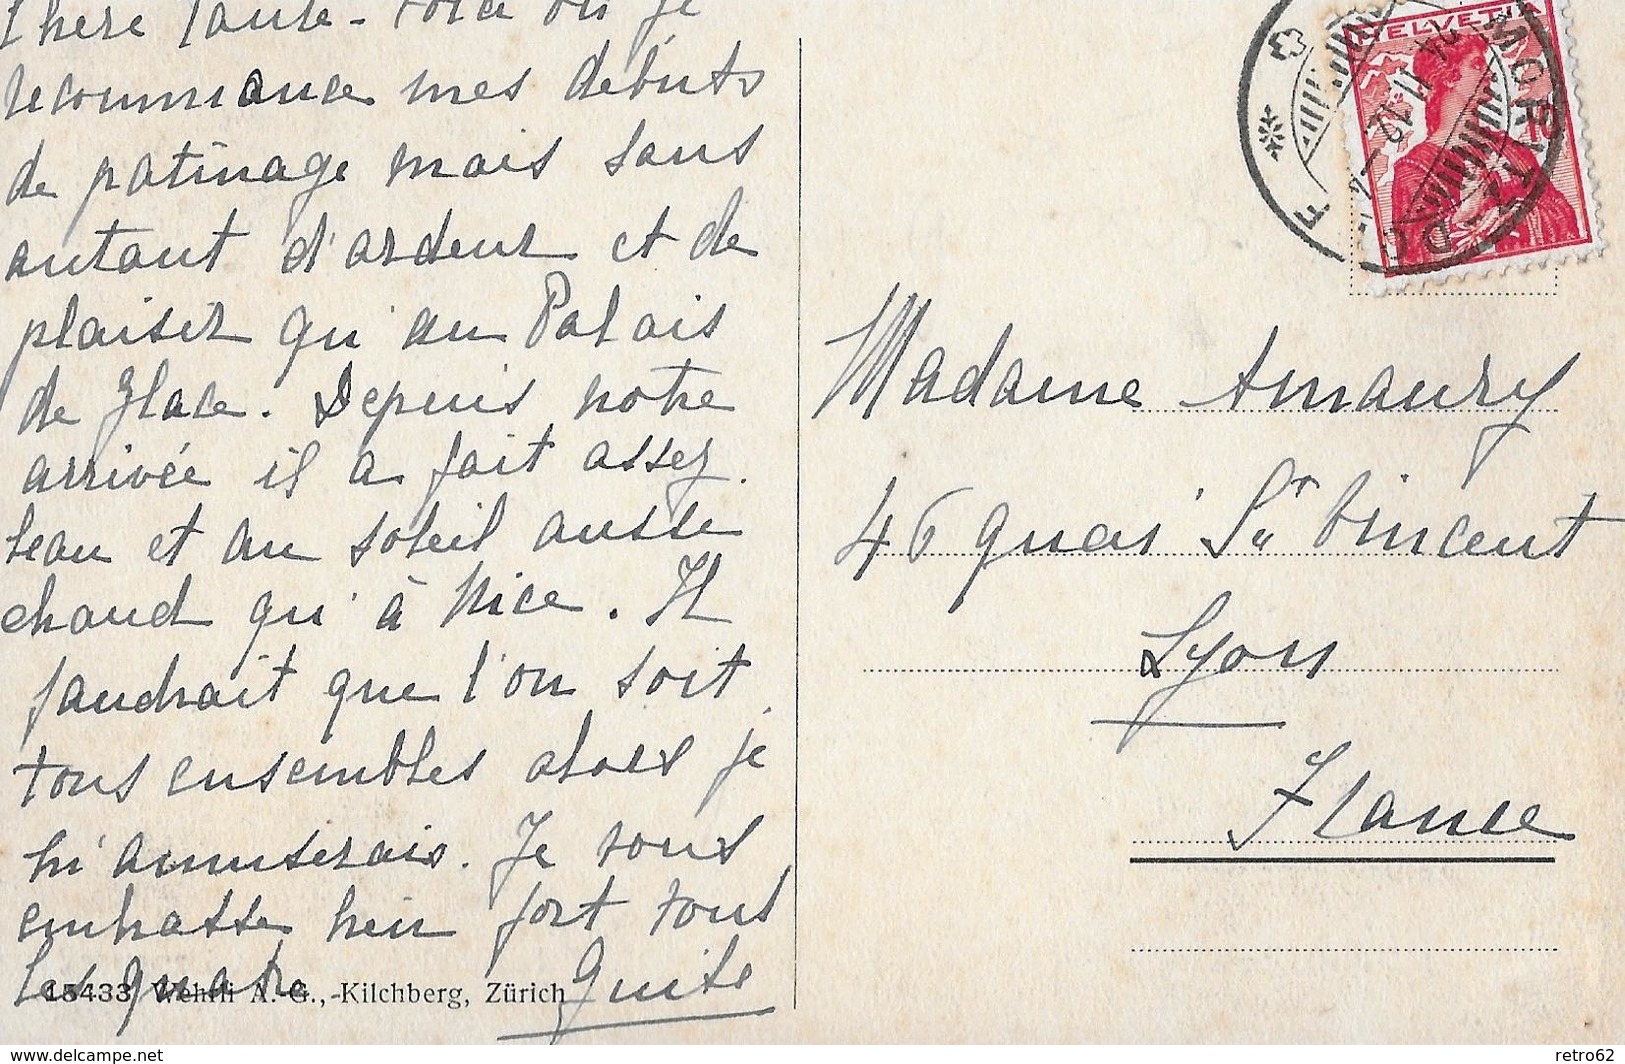 Chère Tante - voici où je
recommance mes débuts
de patinage mais sans
autant d'ardeur et de
plaisir qu'au Palais
de Glace. Depuis notre
arrivée il a fait assez
beau et au soleil aussi
chaud qu'à Nice. Il
faudrait que l'on soit
tous ensembles alors je
m'amuserais. Je vous
embrasse bien fort tous
les quatre
Guite
15433 Wehrli A.-G., Kilchberg, Zürich
HELVETIA
MORITZ
Madame Amaury
46 quai St Vincent
Lyon
France
www.delcampe.net
retro62